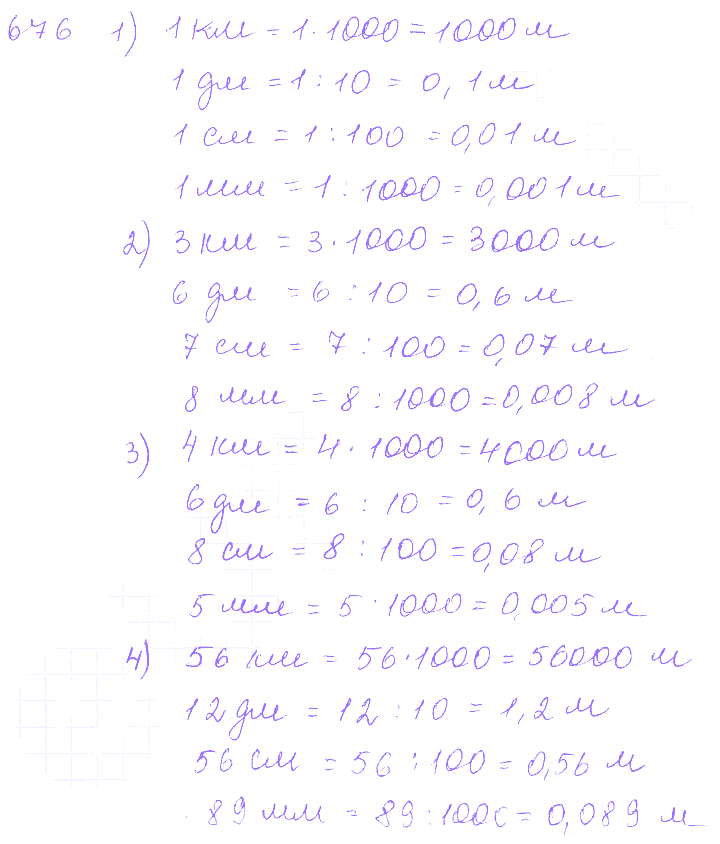 676 1) 1 км = 1·1000 = 1000 м
1 дм = 1 : 10 = 0,1 м
1 см = 1 : 100 = 0,01 м
1 мм = 1 : 1000 = 0,001 м
2) 3 км = 3·1000 = 3000 м
6 дм = 6 : 10 = 0,6 м
7 см = 7 : 100 = 0,07 м
8 мм = 8 : 1000 = 0,008 м
3) 4 км = 4·1000 = 4000 м
6 дм = 6 : 10 = 0,6 м
8 см = 8 : 100 = 0,08 м
5 мм = 5 : 1000 = 0,005 м
4) 56 км = 56·1000 = 56000 м
12 дм = 12 : 10 = 1,2 м
56 см = 56 : 100 = 0,56 м
89 мм = 89 : 1000 = 0,089 м